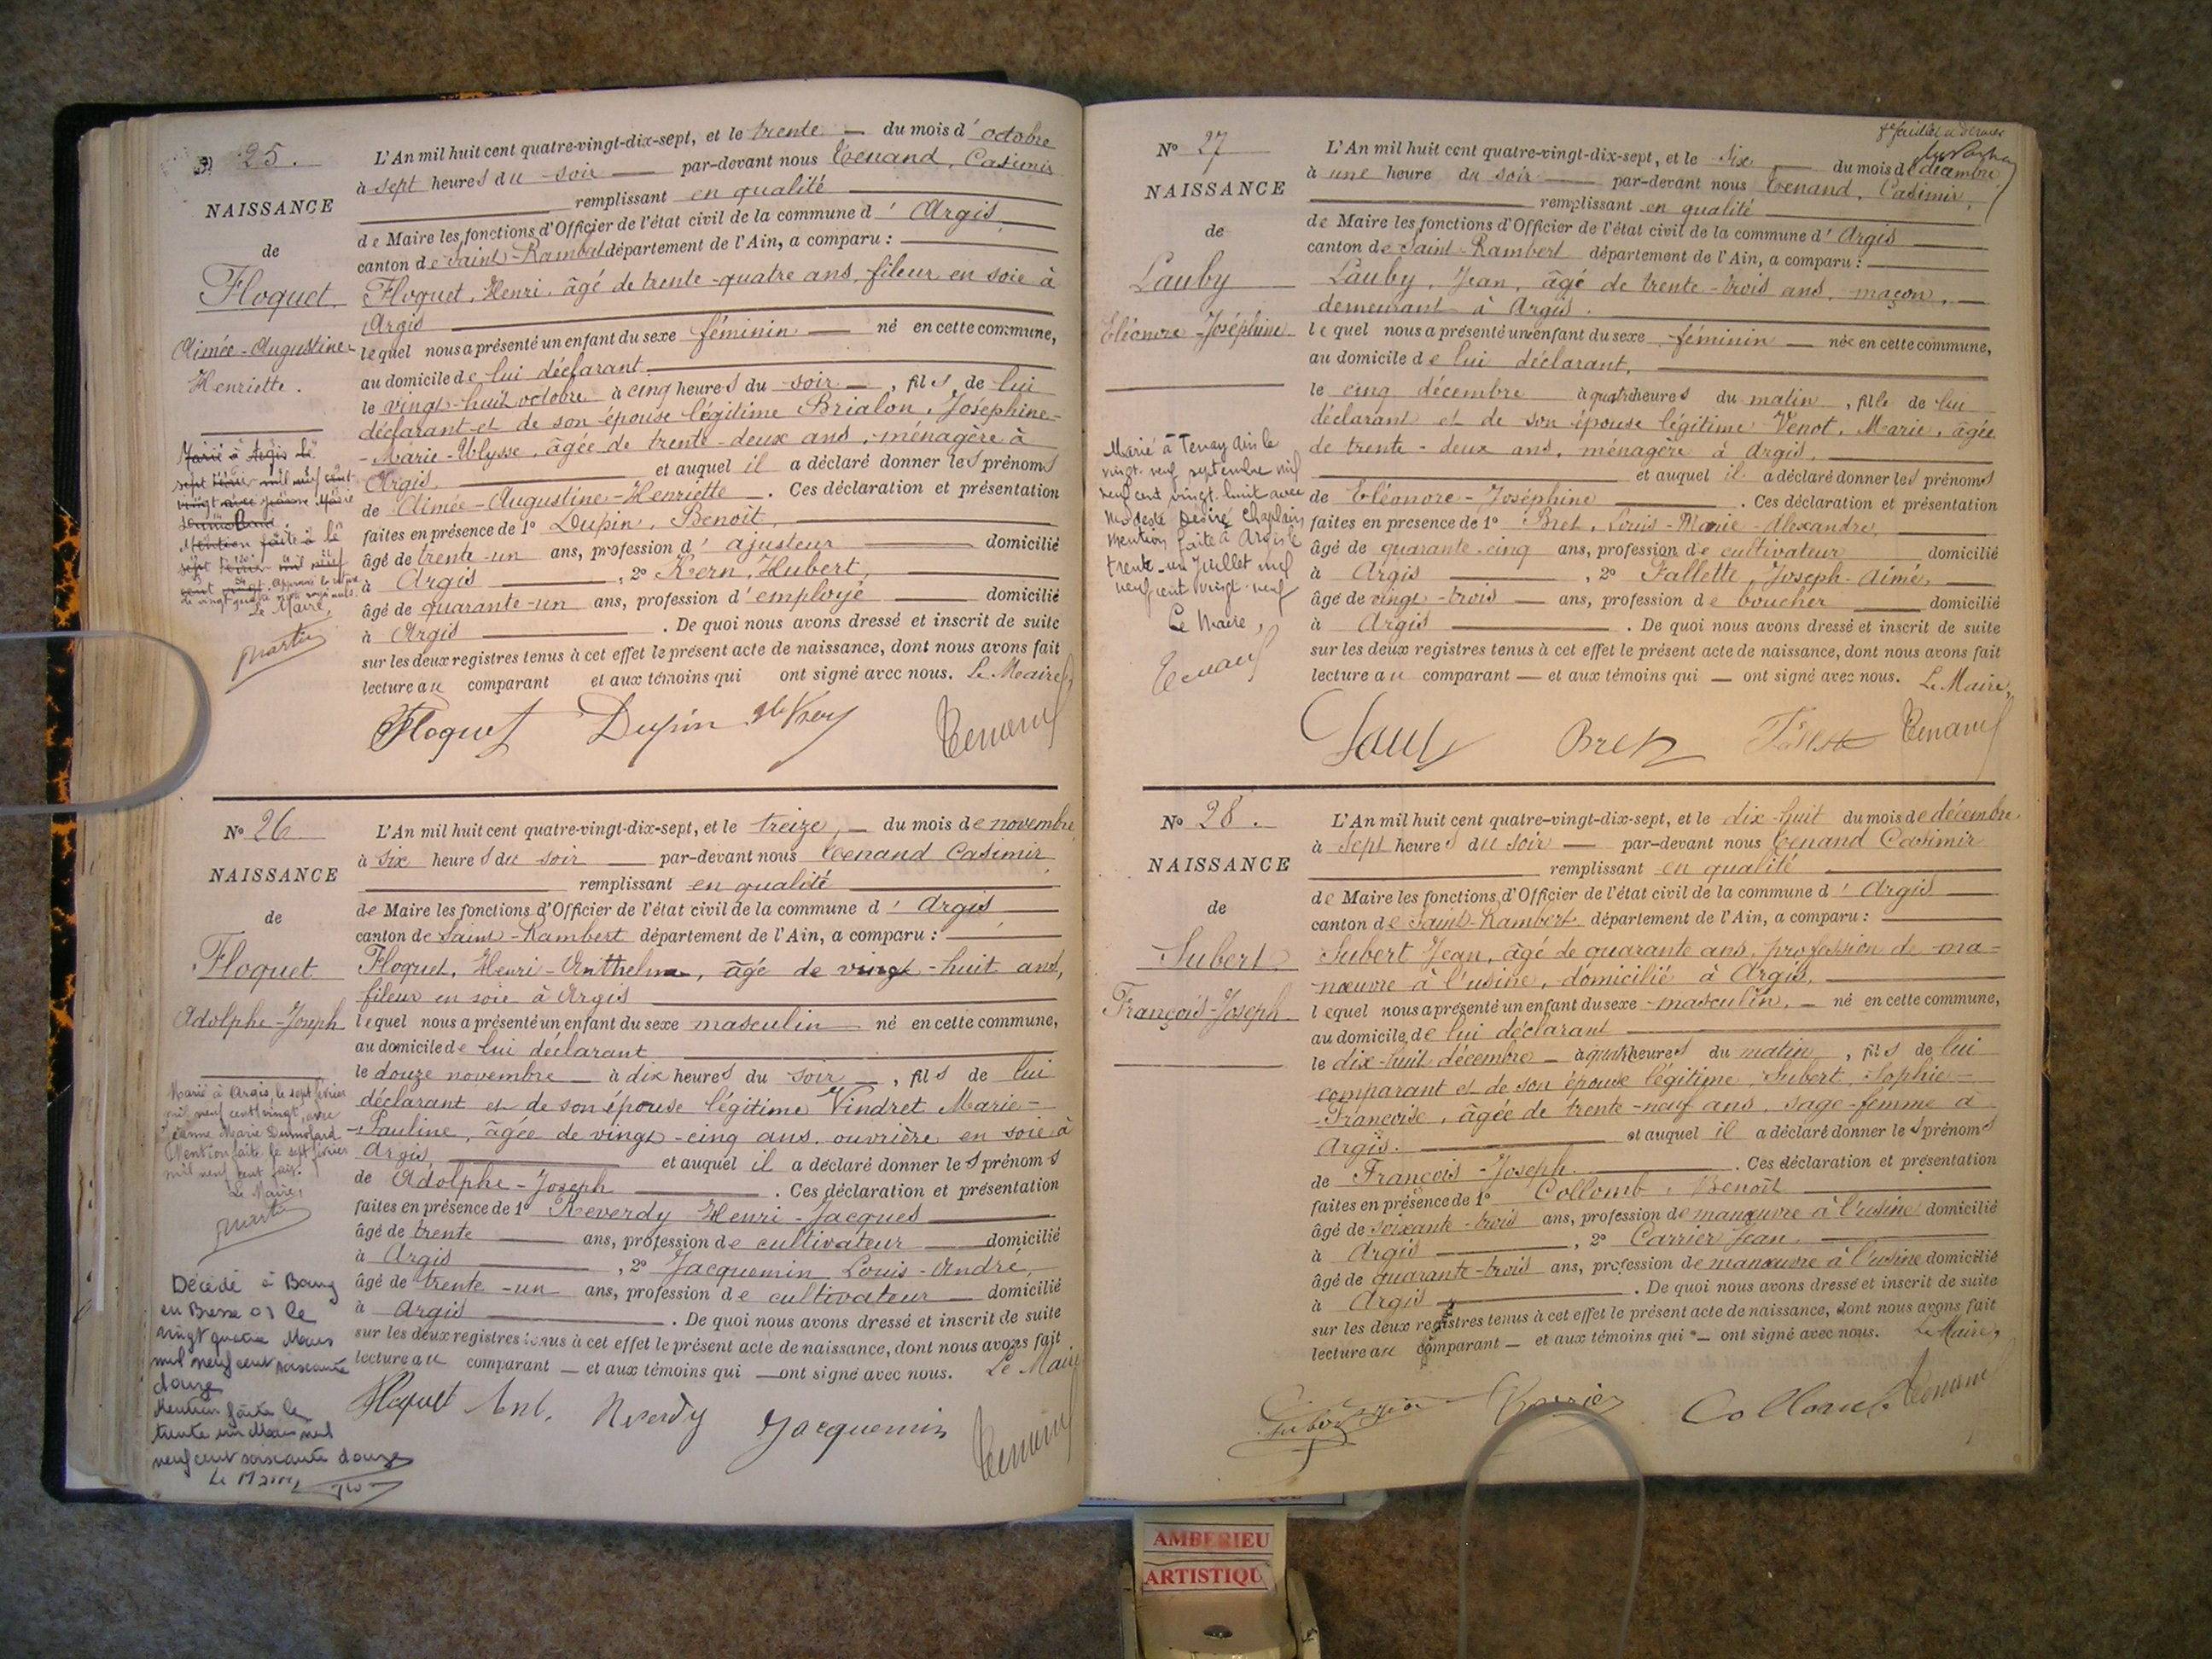 25.
NAISSANCE
de
Floquet
Aimée-Augustine-
Henriette.
Marié à Argis le
sept février mil neuf cent
vingt avec Jeanne Marie
Mention faite à le
sept février mil neuf
cent vingt.
Le Maire,
L'An mil huit cent quatre-vingt-dix-sept, et le trente du mois d'octobre
à sept heures du soir par-devant nous Tenand, Casimir
remplissant en qualité
de Maire les fonctions d'Officier de l'état civil de la commune d'Argis
canton de Saint-Rambert département de l'Ain, a comparu :
Floquet, Henri, âgé de trente-quatre ans, fileur en soie à
Argis
lequel nous a présenté un enfant du sexe féminin né en cette commune,
au domicile de lui déclarant.
le vingt-huit octobre à cinq heures du soir, fils de lui
déclarant et de son épouse légitime Brialon, Joséphine-
-Marie-Ulysse, âgée de trente-deux ans, ménagère à
Argis, et auquel il a déclaré donner les prénoms
de Aimée-Augustine-Henriette. Ces déclaration et présentation
faites en présence de 1° Dupin, Benoit,
âgé de trente-un ans, profession d'ajusteur domicilié
à Argis, 2° Kern, Hubert,
âgé de quarante-un ans, profession d'employé domicilié
à Argis. De quoi nous avons dressé et inscrit de suite
sur les deux registres tenus à cet effet le présent acte de naissance, dont nous avons fait
lecture au comparant et aux témoins qui ont signé avec nous. Le Maire,
Floquet Dupin Tenand
N° 26
NAISSANCE
de
Floquet
Adolphe-Joseph
Marié à Argis, le sept février
mil neuf cent vingt, avec
Jeanne Marie Dumolard
Mention faite le sept février
mil neuf cent
Le Maire,
Décédé à Bourg
en Bresse 01 le
vingt quatre Mars
mil neuf cent soixante
douze
Mention faite le
trente un Mars mil
neuf cent soixante douze
Le Maire,
L'An mil huit cent quatre-vingt-dix-sept, et le treize, du mois de novembre
à six heures du soir par-devant nous Tenand Casimir
remplissant en qualité
de Maire les fonctions d'Officier de l'état civil de la commune d'Argis
canton de Saint-Rambert département de l'Ain, a comparu :
Floquet, Henri-Anthelme, âgé de vingt-huit ans,
fileur en soie à Argis
lequel nous a présenté un enfant du sexe masculin né en cette commune,
au domicile de lui déclarant
le douze novembre à dix heures du soir, fils de lui
déclarant et de son épouse légitime Vindret Marie-
-Pauline, âgée de vingt-cinq ans, ouvrière en soie à
Argis et auquel il a déclaré donner les prénoms
de Adolphe-Joseph. Ces déclaration et présentation
faites en présence de 1° Reverdy Henri-Jacques
âgé de trente ans, profession de cultivateur domicilié
à Argis, 2° Jacquemin Louis-André,
âgé de trente-un ans, profession de cultivateur domicilié
à Argis. De quoi nous avons dressé et inscrit de suite
sur les deux registres tenus à cet effet le présent acte de naissance, dont nous avons fait
lecture au comparant et aux témoins qui ont signé avec nous. Le Maire
Floquet Ant. Reverdy Jacquemin Tenand
N° 27
NAISSANCE
de
Lauby
Eléonore-Joséphine
Marié à Tenay Ain le
vingt-neuf septembre mil
neuf cent vingt-huit avec
Modeste Desiré Chaplain
Mention faite à Argis le
trente-un Juillet mil
neuf cent vingt-neuf
Le Maire,
Tenand
L'An mil huit cent quatre-vingt-dix-sept, et le six du mois de décembre
à une heure du soir par-devant nous Tenand, Casimir,
remplissant en qualité
de Maire les fonctions d'Officier de l'état civil de la commune d'Argis
canton de Saint-Rambert département de l'Ain, a comparu :
Lauby, Jean, âgé de trente-trois ans, maçon,
demeurant à Argis.
lequel nous a présenté un enfant du sexe féminin née en cette commune,
au domicile de lui déclarant,
le cinq décembre à quatre heures du matin, fille de lui
déclarant et de son épouse légitime Venot, Marie, âgée
de trente-deux ans, ménagère à Argis,
et auquel il a déclaré donner les prénoms
de Eléonore-Joséphine. Ces déclaration et présentation
faites en présence de 1° Bret, Louis-Marie-Alexandre,
âgé de quarante-cinq ans, profession de cultivateur domicilié
à Argis, 2° Fallette, Joseph-Aimé,
âgé de vingt-trois ans, profession de boucher domicilié
à Argis. De quoi nous avons dressé et inscrit de suite
sur les deux registres tenus à cet effet le présent acte de naissance, dont nous avons fait
lecture au comparant et aux témoins qui ont signé avec nous. Le Maire,
Lauby Bret Tenand
N° 28.
NAISSANCE
de
Subert
François-Joseph
L'An mil huit cent quatre-vingt-dix-sept, et le dix-huit du mois de décembre
à sept heures du soir par-devant nous Tenand Casimir
remplissant en qualité
de Maire les fonctions d'Officier de l'état civil de la commune d'Argis
canton de Saint-Rambert département de l'Ain, a comparu :
Subert Jean, âgé de quarante ans, profession de ma=
nœuvre à l'usine, domicilié à Argis,
lequel nous a présenté un enfant du sexe masculin, né en cette commune,
au domicile de lui déclarant
le dix-huit décembre à quatre heures du matin, fils de lui
comparant et de son épouse légitime Subert, Sophie-
-Françoise, âgée de trente-neuf ans, sage-femme à
Argis. et auquel il a déclaré donner les prénoms
de François-Joseph. Ces déclaration et présentation
faites en présence de 1° Collomb, Benoît
âgé de soixante-trois ans, profession de manœuvre à l'usine domicilié
à Argis, 2° Carrier Jean,
âgé de quarante-trois ans, profession de manœuvre à l'usine domicilié
à Argis. De quoi nous avons dressé et inscrit de suite
sur les deux registres tenus à cet effet le présent acte de naissance, dont nous avons fait
lecture au comparant et aux témoins qui ont signé avec nous. Le Maire,
Subert Carrier Collomb Tenand
AMBERIEU
ARTISTIQU